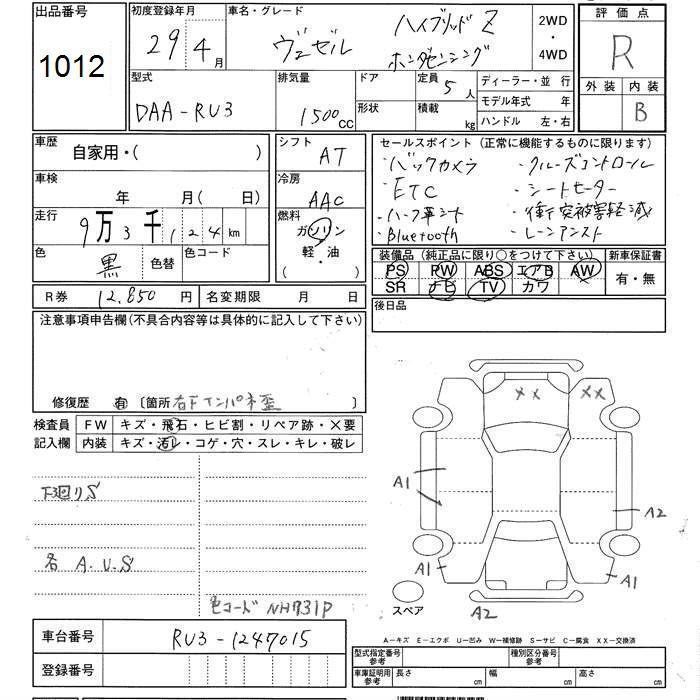 出品番号
1012
初度登録年月
29 4月
車名・グレード
ヴェゼル ハイブリッドZ
ホンダセンシング
2WD
・
4WD
評価点
R
外装 内装
B
型式
DAA-RU3
排気量
1500cc
ドア
形状
定員
5人
積載
kg
ディーラー・並行
モデル年式 年
ハンドル 左・右
車歴
自家用・( )
シフト
AT
車検
年 月( 日)
冷房
AAC
走行
9万3千124km
燃料
ガソリン
軽・油
( ・ )
色
黒
色替
色コード
R券 12,850円
名変期限 月 日
セールスポイント(正常に機能するものに限ります)
・バックカメラ ・クルーズコントロール
・ETC ・シートヒーター
・ハーフ革シート ・衝突被害軽減
・Bluetooth ・レーンアシスト
装備品(純正品に限り○をつけて下さい)
新車保証書
PS PW ABS エアB AW
SR ナビ TV カワ
有・無
後日品
注意事項申告欄(不具合内容等は具体的に記入して下さい)
修復歴 有 〔箇所 右Fインパネ歪
検査員
記入欄
FW キズ・飛石・ヒビ割・リペア跡・×要
内装 キズ・汚レ・コゲ・穴・スレ・キレ・破レ
下回りS
各 A.U.S
色コード NH731P
XX
XX
A1
A2
A1
A1
A2
スペア
A-キズ E-エクボ U-凹み W-補修跡 S-サビ C-腐食 XX-交換済
車台番号
RU3-1247015
登録番号
型式指定番号
参考
種別区分番号
参考
車庫証明用
参考
長さ cm
幅 cm
高さ cm